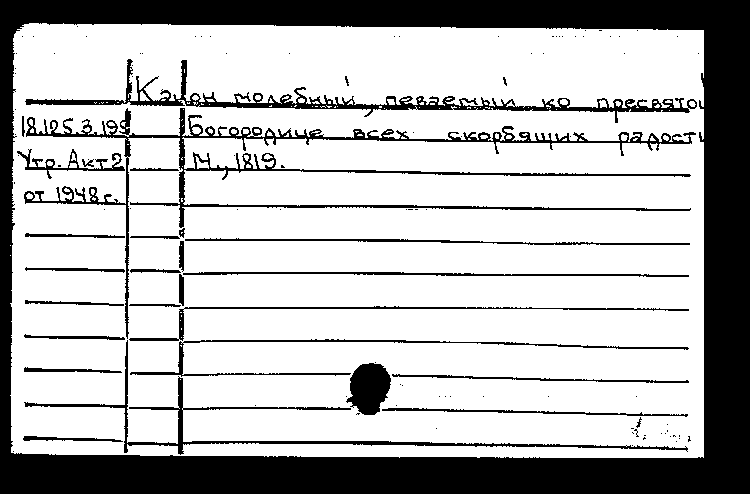 Канон молебный, певаемый ко пресвятой
18.125.3.199 Богородице всех скорбящих радости
Утр. Акт 2 М., 1819.
от 1948 г.